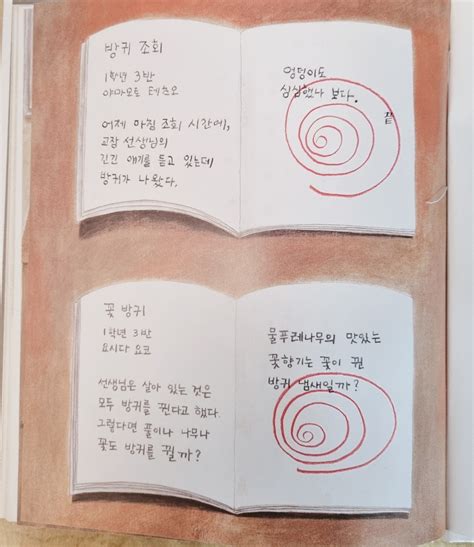 방귀 조회
1학년 3반
야마모토 테츠오
어제 아침 조회 시간에,
교장 선생님의
긴긴 얘기를 듣고 있는데
방귀가 나왔다.
엉덩이도
심심했나 보다.
끝
꽃 방귀
1학년 3반
요시다 요코
선생님은 살아 있는 것은
모두 방귀를 뀐다고 했다.
그렇다면 풀이나 나무나
꽃도 방귀를 뀔까?
물푸레나무의 맛있는
꽃향기는 꽃이 뀐
방귀 냄새일까?